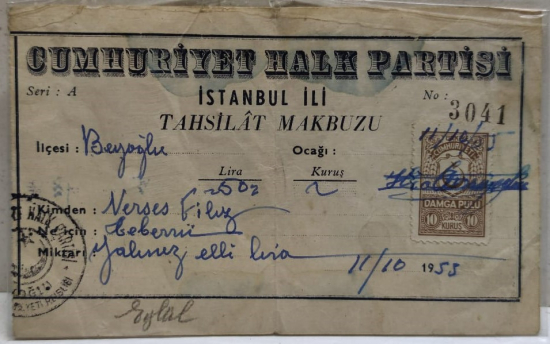 CUMHURİYET HALK PARTİSİ
Seri : A
İSTANBUL İLİ
No : 3041
TAHSİLÂT MAKBUZU
İlçesi : Beyoğlu
Ocağı :
11/10/55
Lira
Kuruş
Kimden : Nerses Filiz
Ne için : Teberru
Miktarı : Yalınız elli lira
11/10 1955
DAMGA PULU
10 KURUŞ 10
Eylül